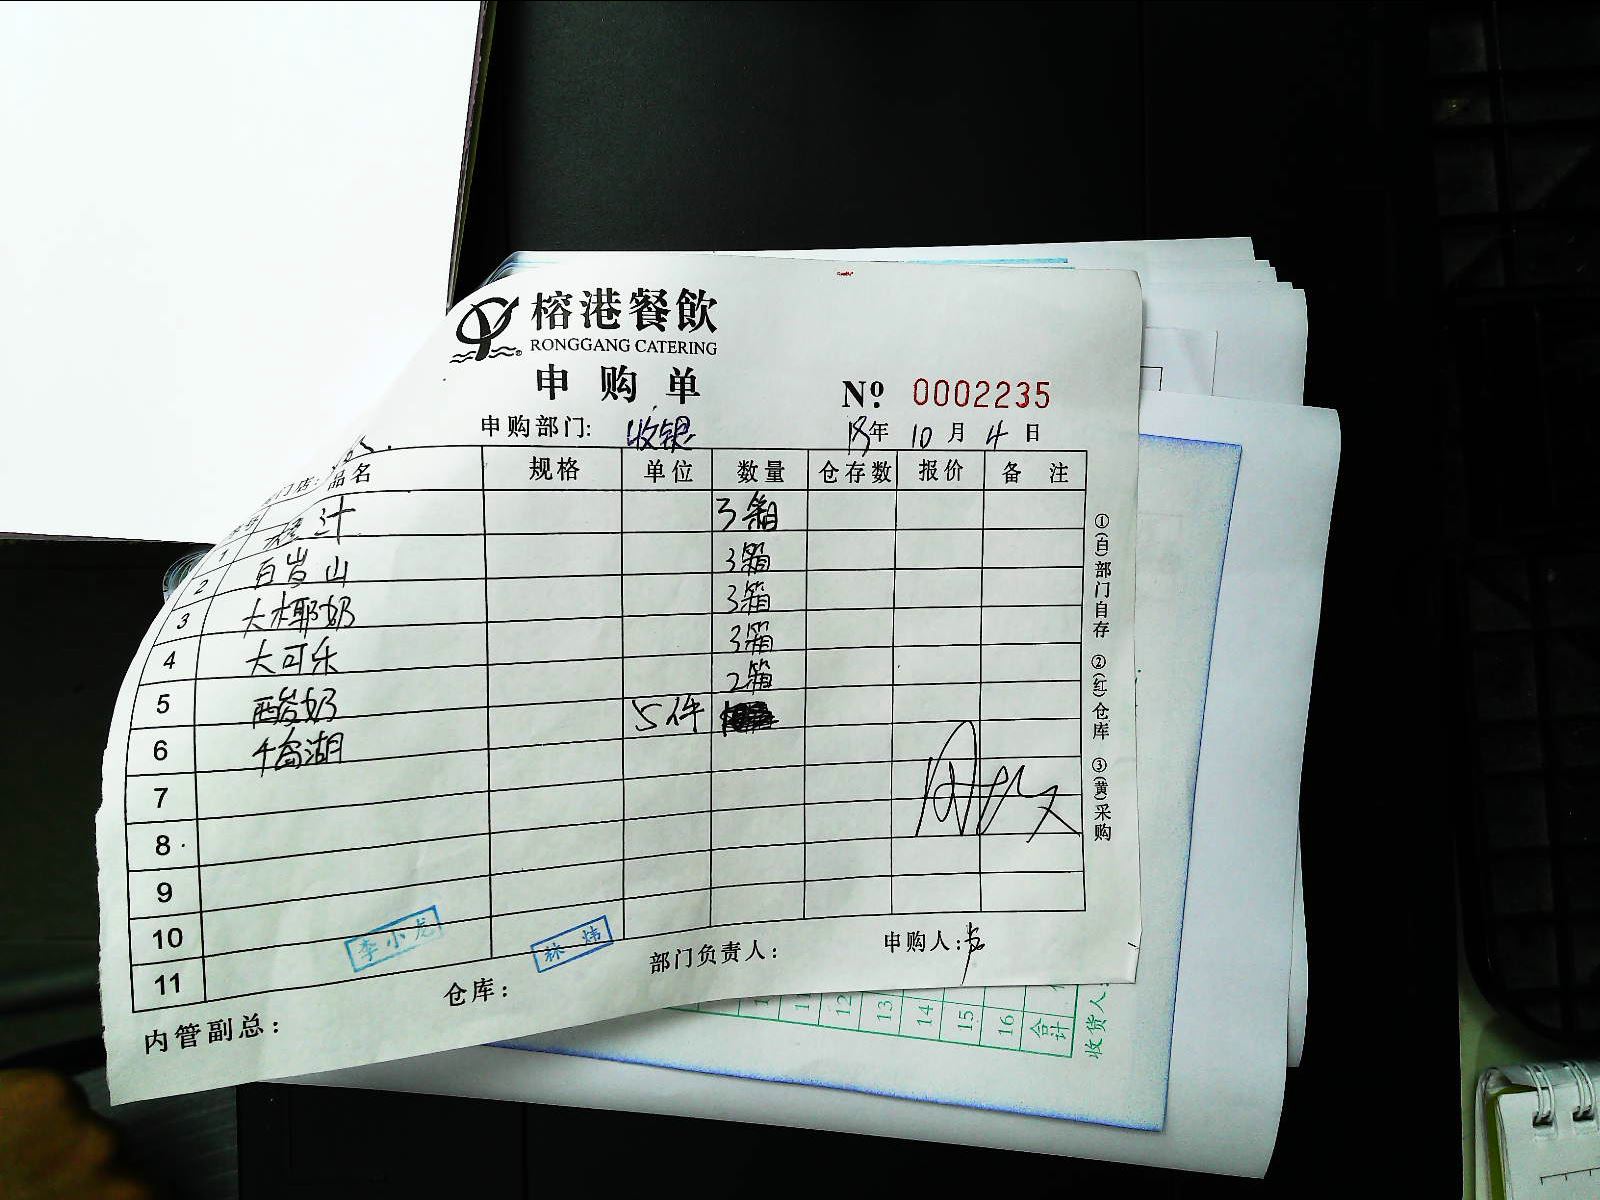 榕港餐飲
RONGGANG CATERING
申购单
Nº 0002235
申购部门: 收银 18年 10月 4日
门店:
品名 规格 单位 数量 仓存数 报价 备注
1 橙汁 3箱
2 百岁山 3箱
3 大椰奶 3箱
4 大可乐 3箱
5 酸奶 2箱
6 千岛湖 5件
7
8
9
10
11
李小龙
林炜
内管副总:
仓库:
部门负责人:
申购人:
①(白)部门自存 ②(红)仓库 ③(黄)采购
11 12 13 14 15 16 合计
收货人: